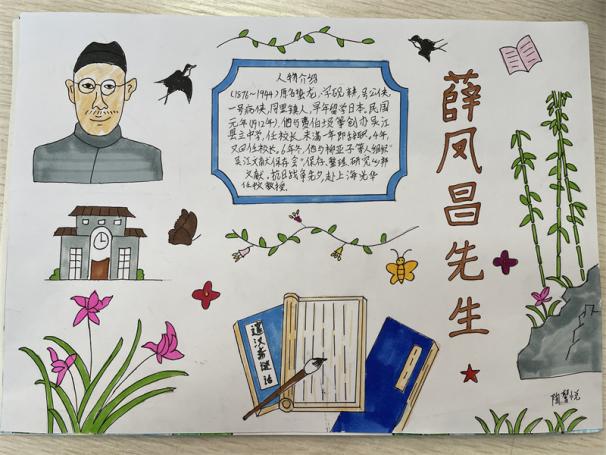 人物介绍
(1876~1944)原名蛰龙,字砚耕,号公侠、
一号病侠,同里镇人,早年留学日本,民国
元年(1912年),他与费伯埙等创办吴江
县立中学,任校长,未满一年即辞职。4年,
又回任校长。6年冬,他与柳亚子等人组织"
吴江文献保存会",保存、整理、研究乡邦
文献。抗日战争先夕,赴上海光华
任教授。
薛凤昌先生